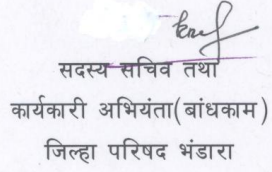 सदस्य सचिव तथा
कार्यकारी अभियंता(बांधकाम)
जिल्हा परिषद भंडारा